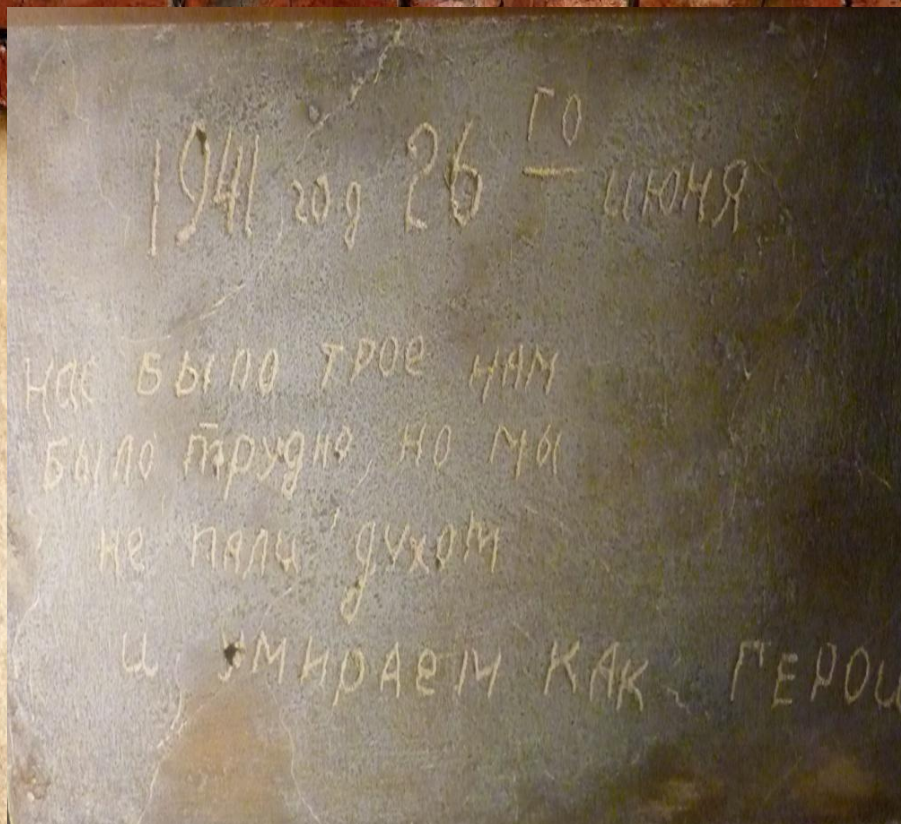 1941 год 26 го июня
нас было трое нам
было трудно, но мы
не пали духом
и умираем как герои